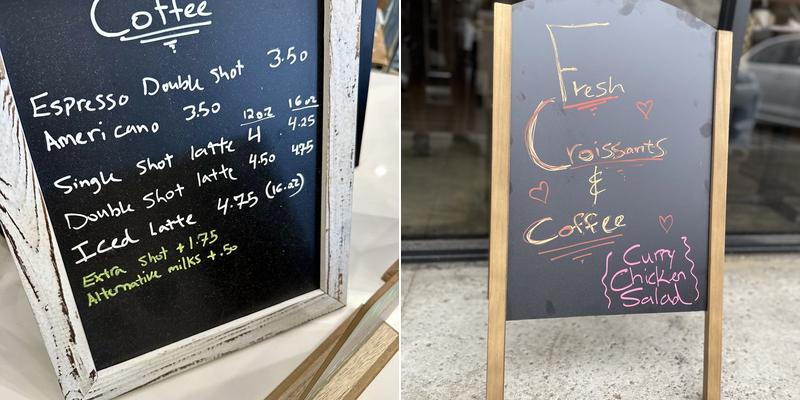 Coffee
Espresso Double Shot 3.50
Americano 3.50
12oz 16oz
Single Shot latte 4 4.25
Double Shot latte 4.50 4.75
Iced latte 4.75 (16.oz)
Extra shot +1.75
Alternative milks +.50
Fresh
Croissants
&
Coffee
Curry
Chicken
Salad